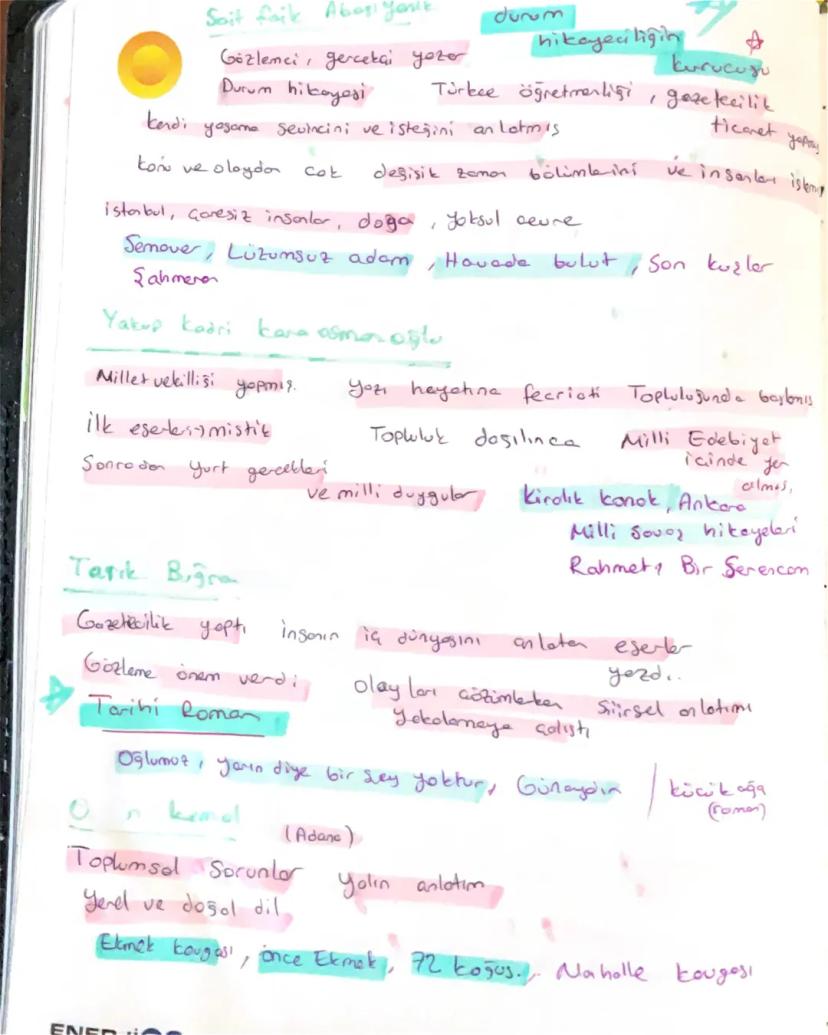 Sait faik Abasıyanık
durum
hikayeciliğin
kurucusu
Gözlemci, gerçekçi yazar
Durum hikayesi
Türkçe öğretmenliği, gazetecilik
ticaret yapmış
kendi yaşama sevincini ve isteğini anlatmış
konu ve olaydan çok değişik zaman bölümlerini ve insanları işlemiş
istanbul, çaresiz insanlar, doğa, yoksul çevre
Semaver, Lüzumsuz adam, Havada bulut, Son kuşlar
Şahmeran
Yakup Kadri karaosmanoğlu
Milletvekilliği yapmış. yazı hayatına fecriati Topluluğunda başlamış
ilk eserleri→mistik Topluluk dağılınca Milli Edebiyat
içinde yer
almış,
Sonradan yurt gerçekleri
ve milli duygular
kiralık konak, Ankara
Milli savaş hikayeleri
Rahmet, Bir Serencam
Tarık Buğra
Gazetecilik yaptı insanın iç dünyasını anlatan eserler
yazdı..
Gözleme önem verdi
olayları çözümlerken şiirsel anlatımı
yakalamaya çalıştı
Tarihi Roman
Oğlumuz, yarın diye bir şey yoktur, Günaydın / küçük ağa
(roman)
O n kemal
(Adana)
Toplumsal Sorunlar yalın anlatım
yerel ve doğal dil
Ekmek kavgası, önce Ekmek, 72 koğuş., Mahalle kavgası